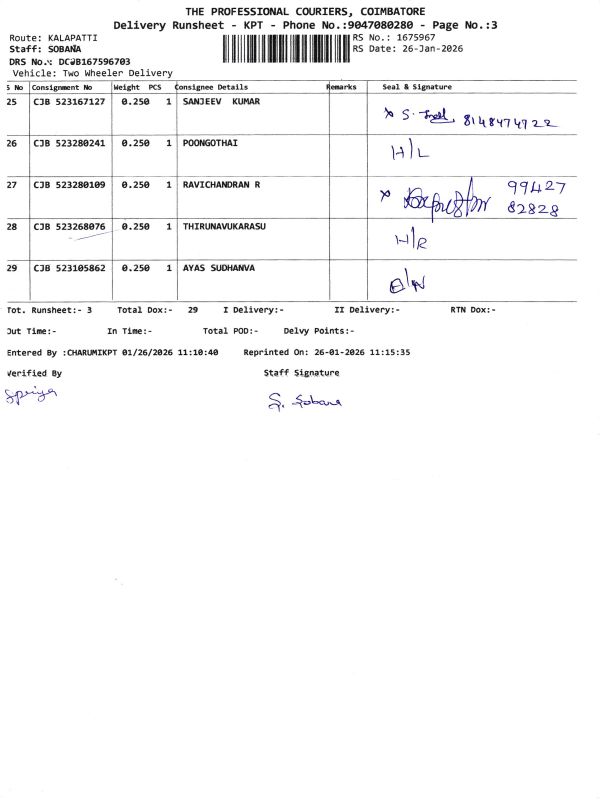 THE PROFESSIONAL COURIERS, COIMBATORE
Delivery Runsheet - KPT - Phone No.:9047080280 - Page No.:3
Route: KALAPATTI RS No.: 1675967
Staff: SOBANA RS Date: 26-Jan-2026
DRS No.: DCJB167596703
Vehicle: Two Wheeler Delivery
S No Consignment No Weight PCS Consignee Details Remarks Seal & Signature
25 CJB 523167127 0.250 1 SANJEEV KUMAR
8148474722
26 CJB 523280241 0.250 1 POONGOTHAI H/L
27 CJB 523280109 0.250 1 RAVICHANDRAN R 99427
82828
28 CJB 523268076 0.250 1 THIRUNAVUKARASU H/R
29 CJB 523105862 0.250 1 AYAS SUDHANVA
Tot. Runsheet:- 3 Total Dox:- 29 I Delivery:- II Delivery:- RTN Dox:-
Out Time:- In Time:- Total POD:- Delvy Points:-
Entered By :CHARUMIKPT 01/26/2026 11:10:40 Reprinted On: 26-01-2026 11:15:35
Verified By Staff Signature
S. Sobana